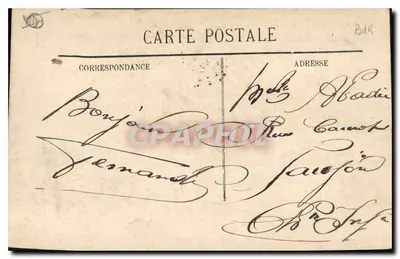 BAR
CARTE POSTALE
CORRESPONDANCE
ADRESSE
Bonjour
Fernande
Melle Abadie
Rue Carnot
Saujon
Ch Infre
CPAPHIL